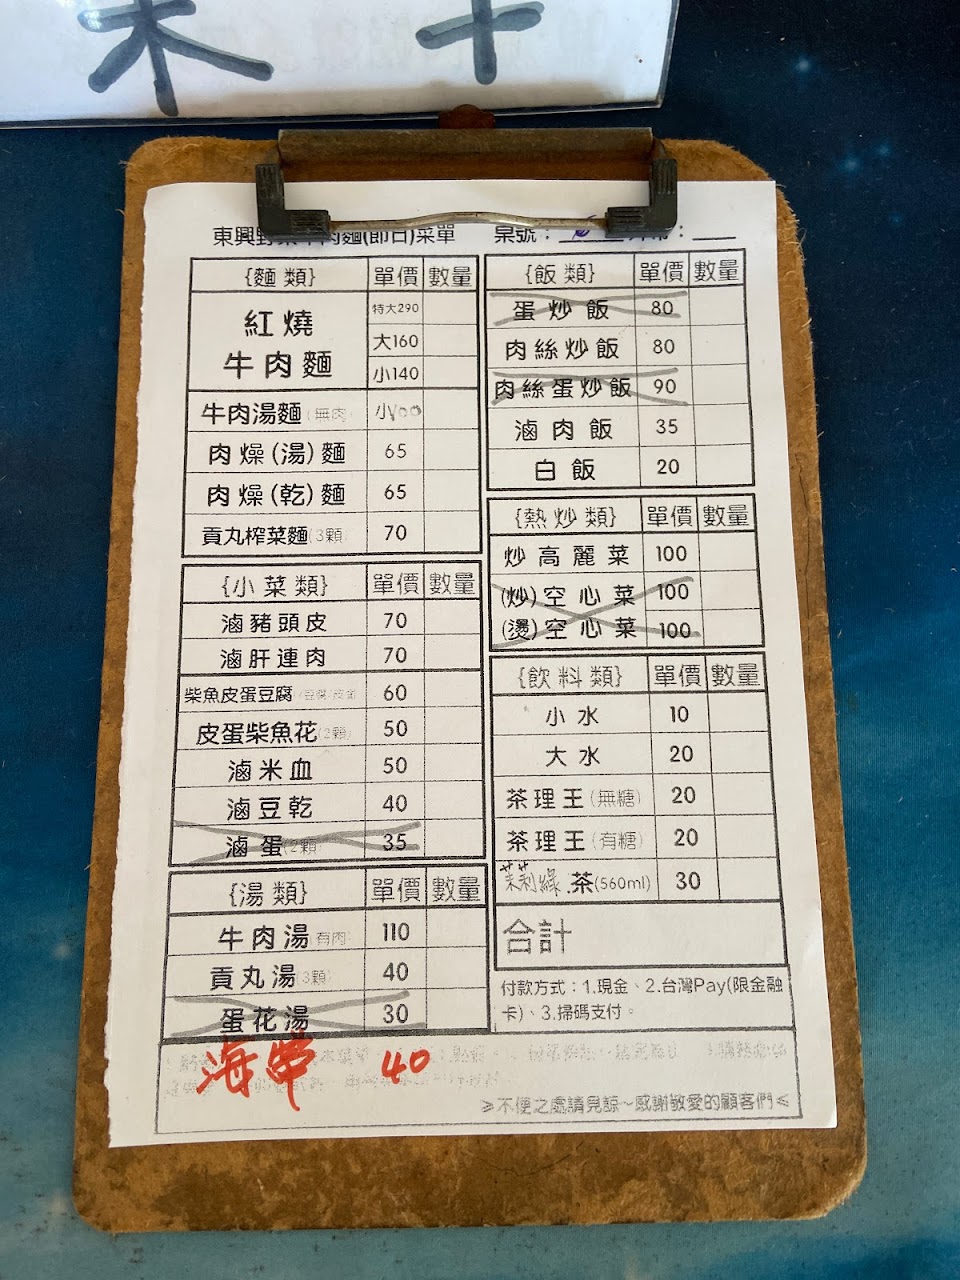 東興野菜牛肉麵(節日)菜單
桌號：
{麵類} 單價 數量
紅燒牛肉麵 特大290
大160
小140
牛肉湯麵(無肉) 小100
肉燥(湯)麵 65
肉燥(乾)麵 65
貢丸榨菜麵(3顆) 70
{小菜類} 單價 數量
滷豬頭皮 70
滷肝連肉 70
柴魚皮蛋豆腐 60
皮蛋柴魚花(2顆) 50
滷米血 50
滷豆乾 40
滷蛋(2顆) 35
{湯類} 單價 數量
牛肉湯(有肉) 110
貢丸湯(3顆) 40
蛋花湯 30
海帶 40
{飯類} 單價 數量
蛋炒飯 80
肉絲炒飯 80
肉絲蛋炒飯 90
滷肉飯 35
白飯 20
{熱炒類} 單價 數量
炒高麗菜 100
(炒)空心菜 100
(燙)空心菜 100
{飲料類} 單價 數量
小水 10
大水 20
茶理王(無糖) 20
茶理王(有糖) 20
茉莉綠茶(560ml) 30
合計
付款方式：1.現金、2.台灣Pay(限金融
卡)、3.掃碼支付。
≫不便之處請見諒~感謝敬愛的顧客們≪